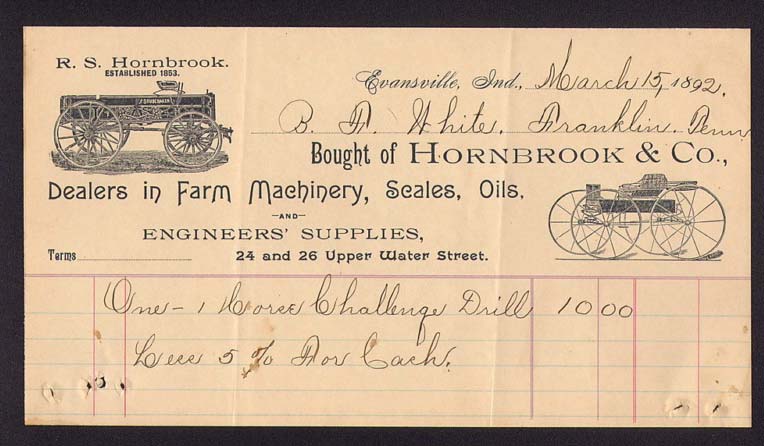 R. S. Hornbrook.
ESTABLISHED 1853.
Evansville, Ind., March 15, 1892.
B. F. White, Franklin, Penn
Bought of HORNBROOK & CO.,
Dealers in Farm Machinery, Scales, Oils,
—AND—
ENGINEERS' SUPPLIES,
Terms
24 and 26 Upper Water Street.
One - 1 Horse Challenge Drill 10 00
Less 5 % For Cash.